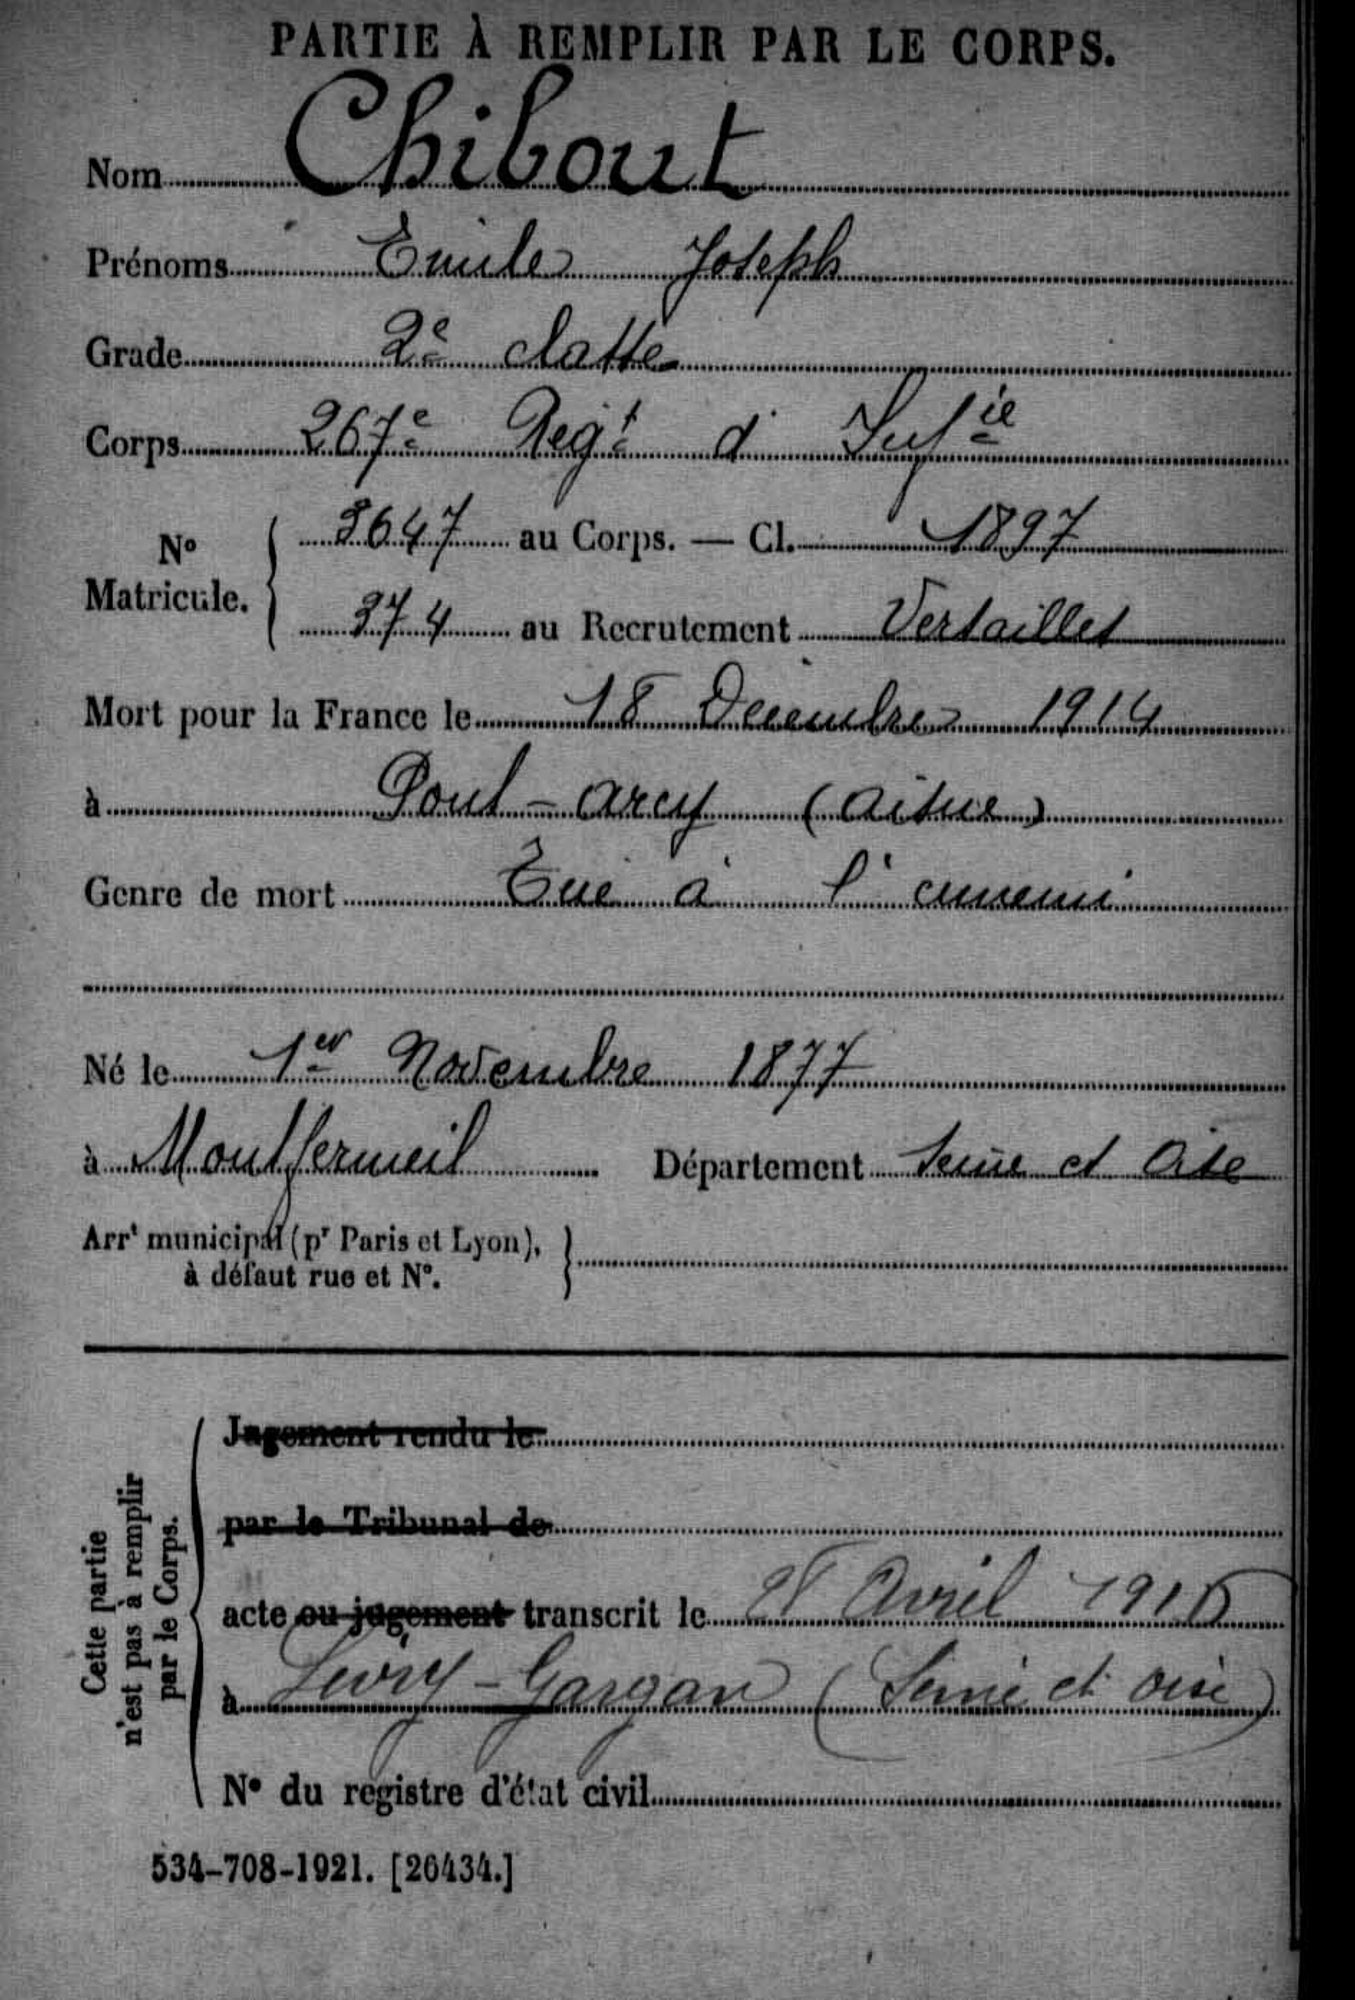 PARTIE À REMPLIR PAR LE CORPS.
Nom Chibout
Prénoms Emile Joseph
Grade 2e classe
Corps 267e Regt d'Infie
No Matricule. 3647 au Corps. — Cl. 1897
374 au Recrutement Versailles
Mort pour la France le 18 Decembre 1914
à Pont-arcy (aisne)
Genre de mort Tué à l'ennemi
Né le 1er Novembre 1877
à Montfermeil Département Seine et Oise
Arrt municipal (pr Paris et Lyon),
à défaut rue et No.
Cette partie
n'est pas à remplir
par le Corps.
Jugement rendu le
par le Tribunal de
acte ou jugement transcrit le 28 Avril 1915
à Livry-Gargan (Seine et oise)
No du registre d'état civil
534-708-1921. [26434.]